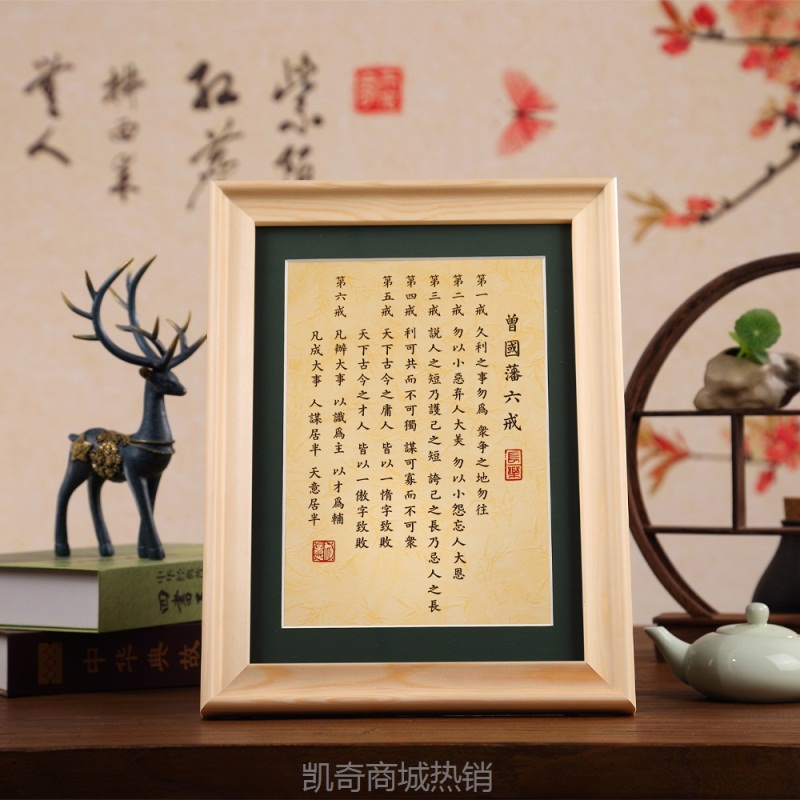 曾國藩六戒
第一戒 久利之事勿爲 衆争之地勿往
第二戒 勿以小惡弃人大美 勿以小怨忘人大恩
第三戒 説人之短乃護己之短 誇己之長乃忌人之長
第四戒 利可共而不可獨 謀可寡而不可衆
第五戒 天下古今之庸人 皆以一惰字致敗
天下古今之才人 皆以一傲字致敗
第六戒 凡辦大事 以識爲主 以才爲輔
凡成大事 人謀居半 天意居半
中华典故
凯奇商城热销